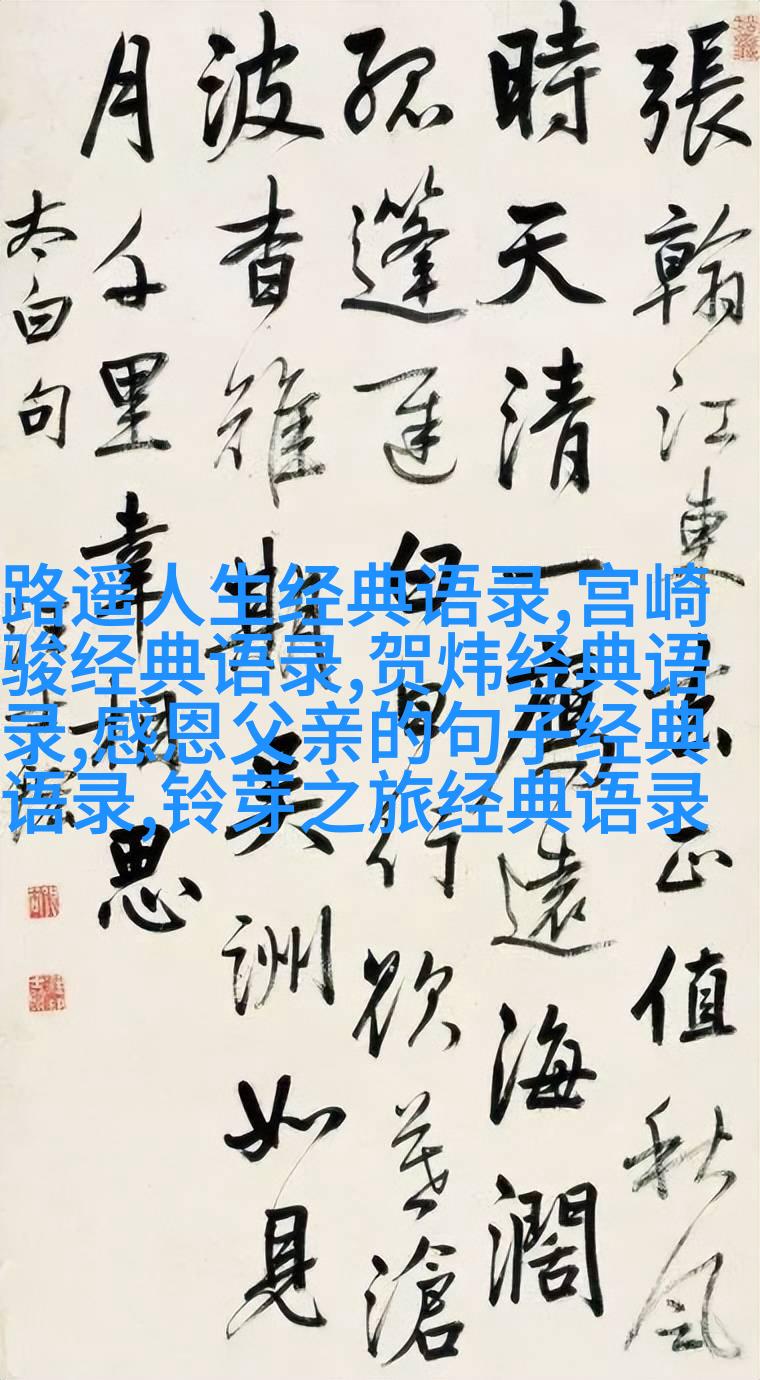 張翰江東去正值秋風
時天清一鴈遠海闊
孤蓬遲白日行欲暮滄
波杳難期吳洲如見
月千里幸相思
太白句
路遥人生经典语录,宫崎
骏经典语录,贺炜经典语
录,感恩父亲的句子经典
语录,铃芽之旅经典语录